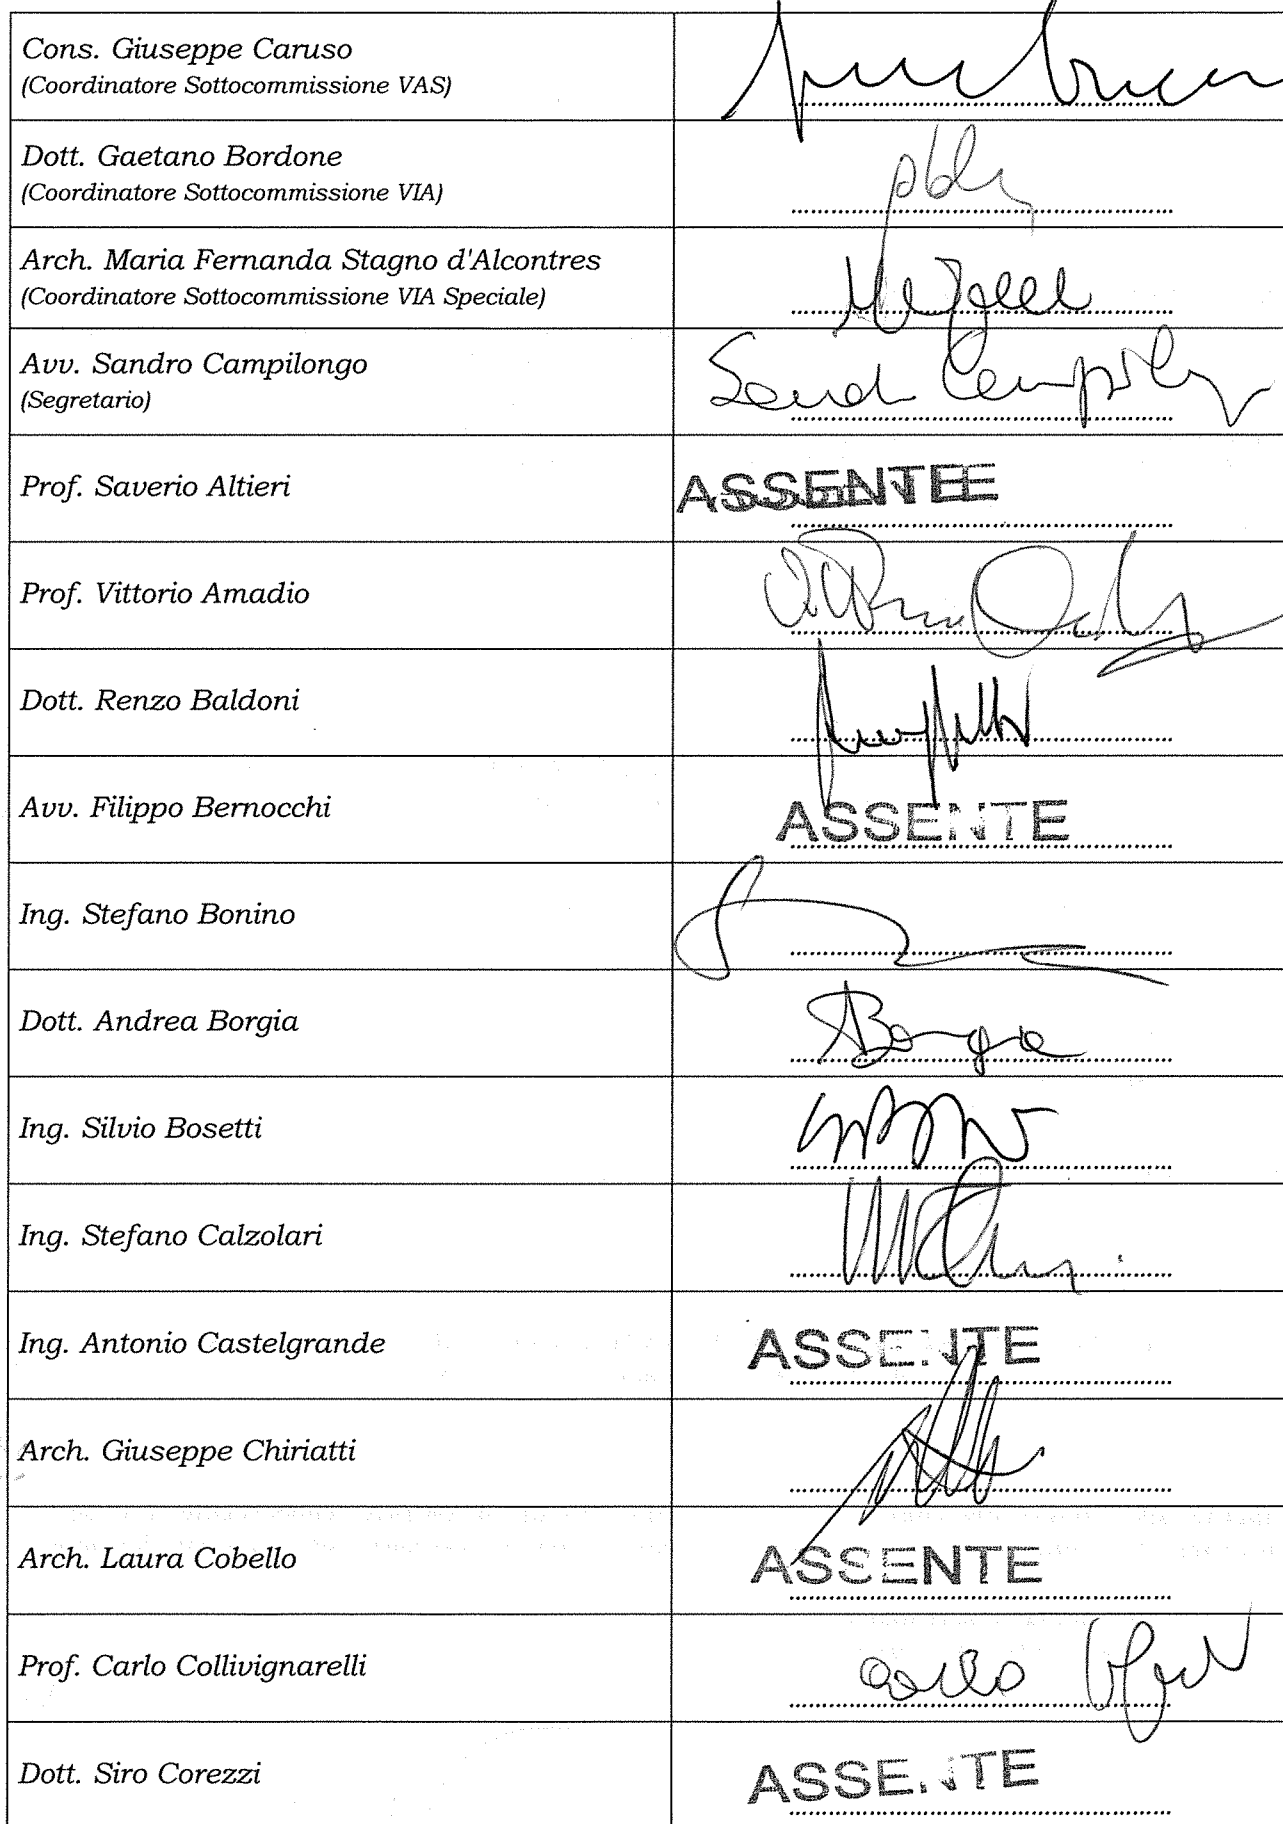 Cons. Giuseppe Caruso
(Coordinatore Sottocommissione VAS)
Dott. Gaetano Bordone
(Coordinatore Sottocommissione VIA)
Arch. Maria Fernanda Stagno d'Alcontres
(Coordinatore Sottocommissione VIA Speciale)
Avv. Sandro Campilongo
(Segretario)
Prof. Saverio Altieri
ASSENTE
Prof. Vittorio Amadio
Dott. Renzo Baldoni
Avv. Filippo Bernocchi
ASSENTE
Ing. Stefano Bonino
Dott. Andrea Borgia
Ing. Silvio Bosetti
Ing. Stefano Calzolari
Ing. Antonio Castelgrande
ASSENTE
Arch. Giuseppe Chiriatti
Arch. Laura Cobello
ASSENTE
Prof. Carlo Collivignarelli
Dott. Siro Corezzi
ASSENTE